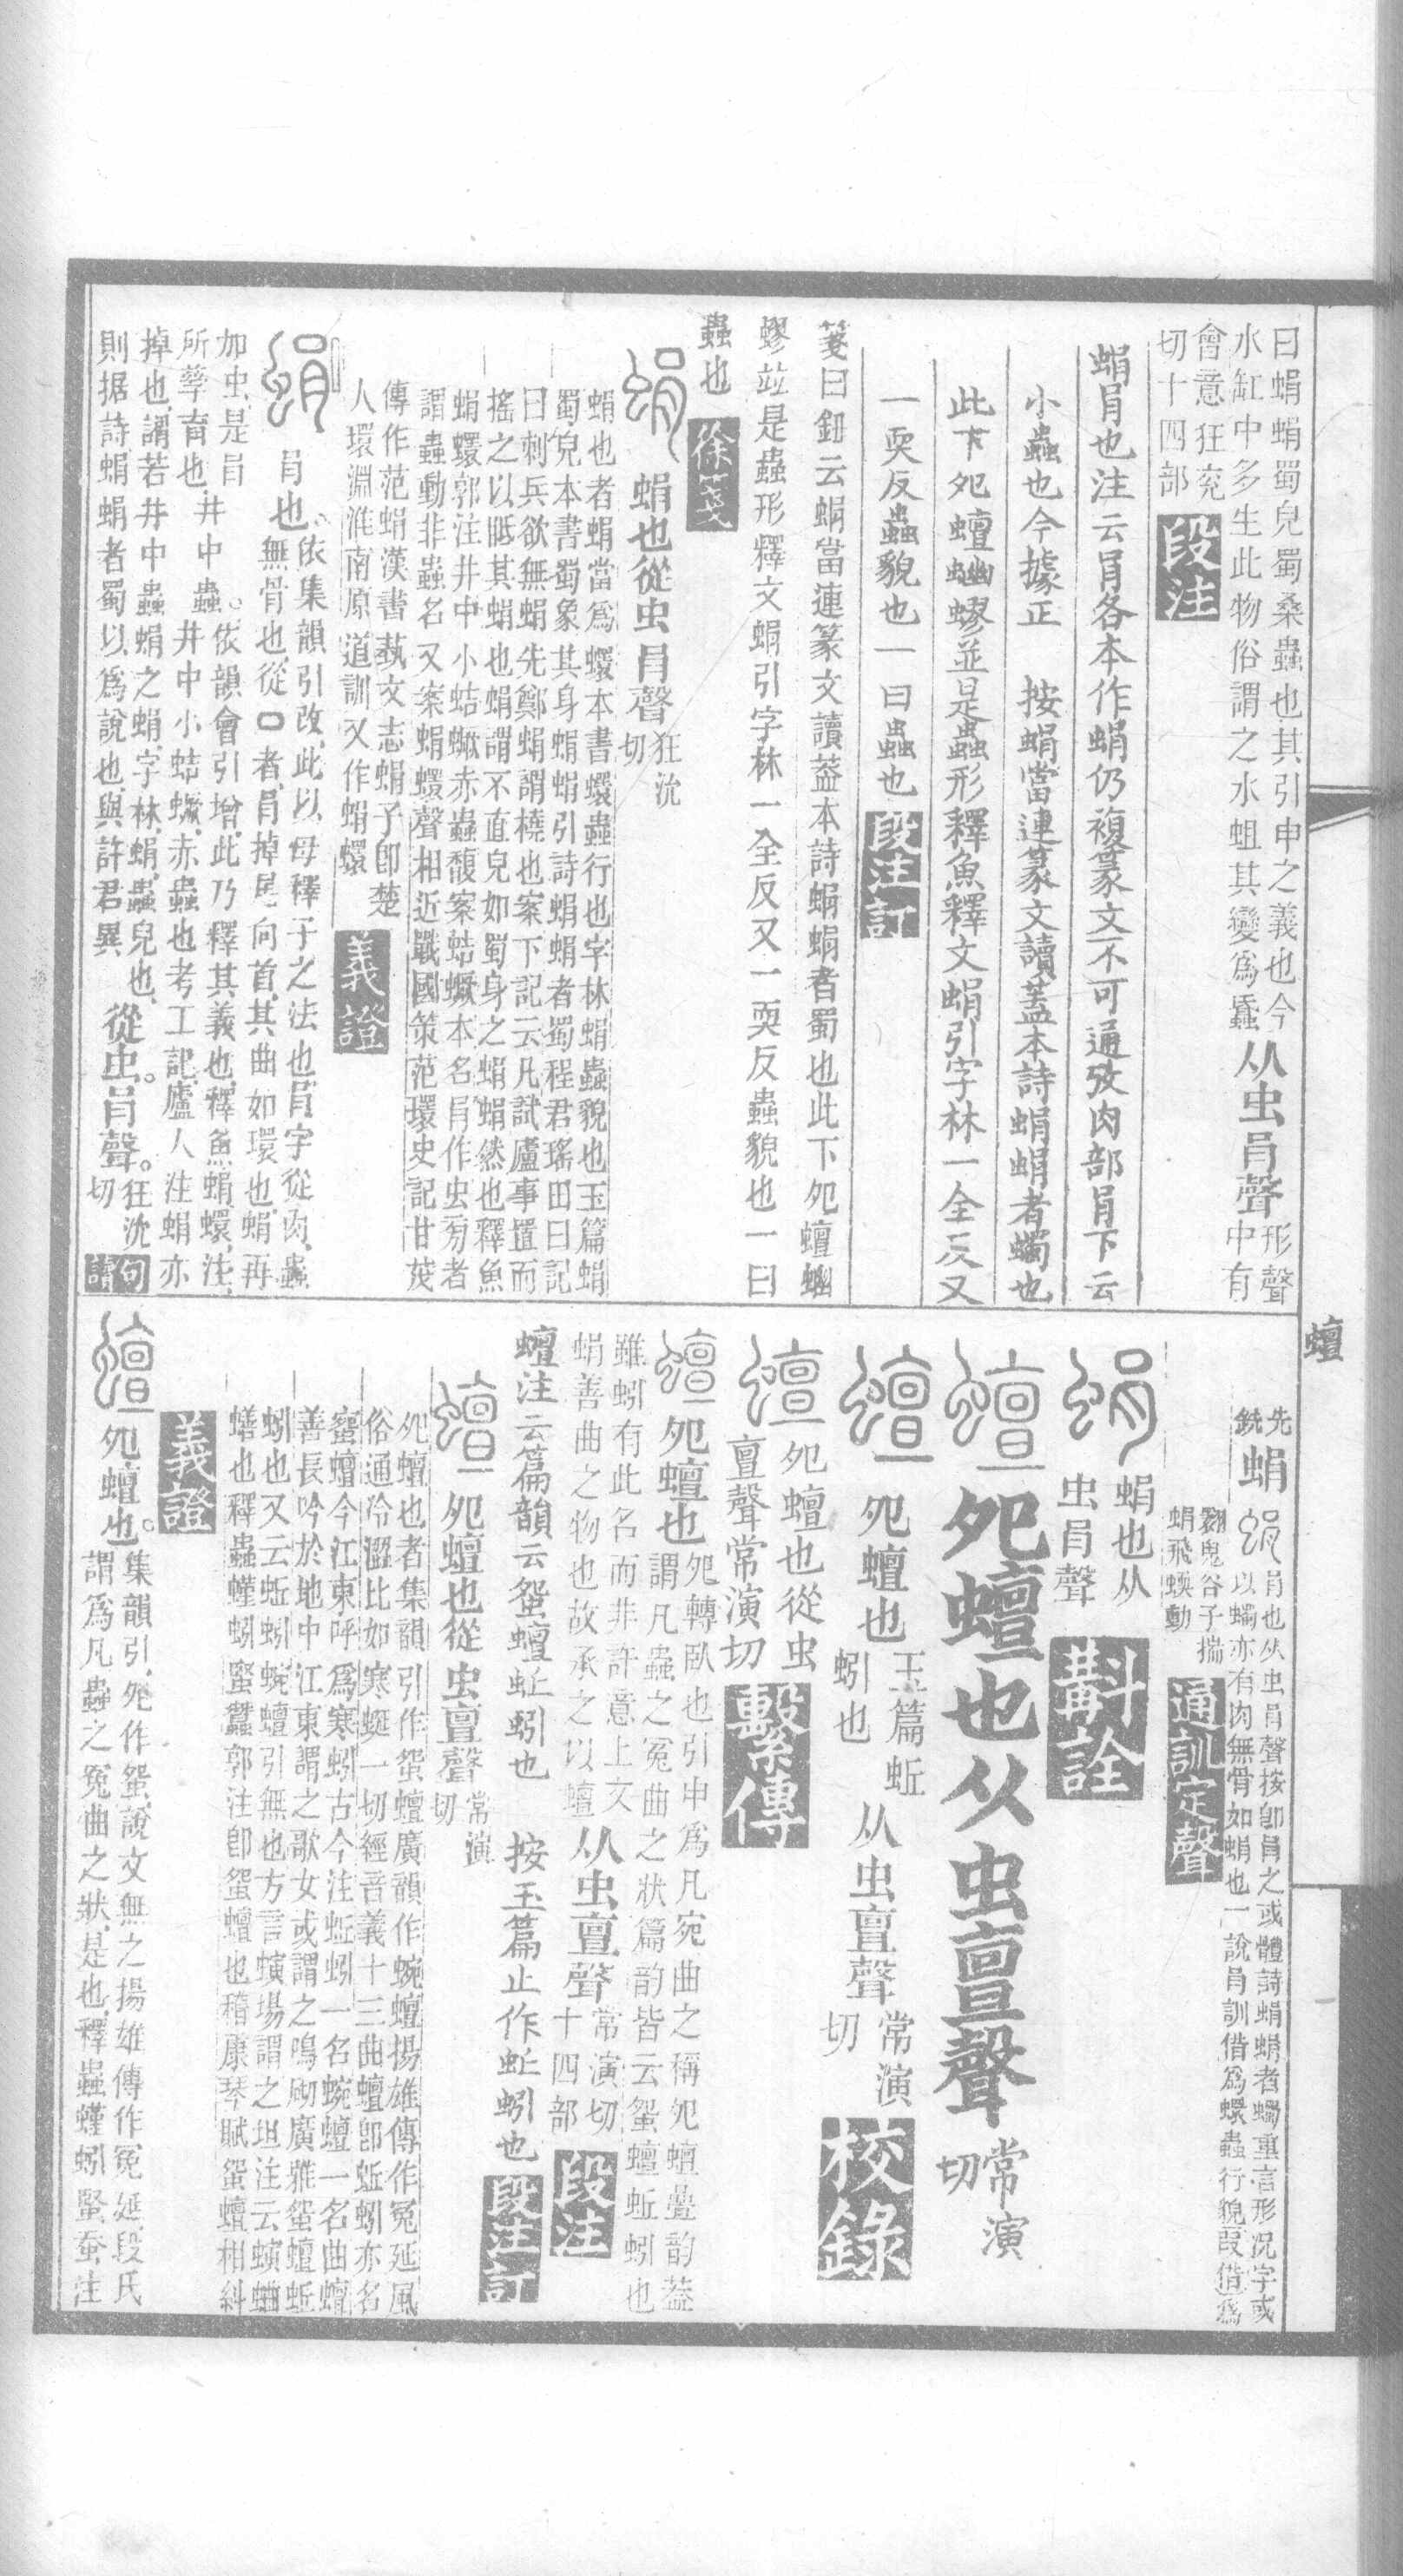 曰蜎蜎蜀皃蜀桑蟲也其引申之義也今
水缸中多生此物俗謂之水蛆其變爲蟁
从虫肙聲
形聲
中有
會意狂兗
切十四部
段注
蜎肙也注云肙各本作蜎仍複篆文不可通攷肉部肙下云
小蟲也今據正 按蜎當連篆文讀葢本詩蜎蜎者蠋也
此下夗蟺蟉並是蟲形釋魚釋文蜎引字林一全反又
一耎反蟲貌也一曰蟲也
段注訂
箋曰鈕云蜎當連篆文讀葢本詩蜎蜎者蜀也此下夗蟺
蟉竝是蟲形釋文蜎引字林一全反又一耎反蟲貌也一曰
蟲也
徐箋
蜎也從虫肙聲
狂沇
切
蜎也者蜎當爲蠉本書蠉蟲行也字林蜎蟲貌也玉篇蜎
蜀皃本書蜀象其身蜎蜎引詩蜎蜎者蜀程君瑤田曰記
曰刺兵欲無蜎先鄭蜎謂橈也案下記云凡試廬事置而
搖之以眂其蜎也蜎謂不直皃如蜀身之蜎蜎然也釋魚
蜎蠉郭注井中小蛣蟩赤蟲馥案蛣蟩本名肙作虫旁者
謂蟲動非蟲名又案蜎蠉聲相近戰國策范環史記甘茂
傳作范蜎漢書蓺文志蜎子卽楚
人環淵淮南原道訓又作蜎蠉
義證
肙也
依集韻引改此以母釋子之法也肙字從肉蟲
無骨也從口者肙掉尾向首其曲如環也蜎再
加虫是肙
所孳育也
井中蟲
依韻會引增此乃釋其義也釋魚蜎蠉注
井中小蛣蟩赤蟲也考工記廬人注蜎亦
掉也謂若井中蟲蜎之蜎字林蜎蟲皃也
則据詩蜎蜎者蜀以爲說也與許君異
從虫肙聲
狂沇
切
句讀
蟺
先
銑
蜎
肙也从虫肙聲按卽肙之或體詩蜎蜎者蠋重言形況字或
以蠋亦有肉無骨如蜎也一說肙訓借爲蠉蟲行貌叚借爲
翾鬼谷子揣
蜎飛蝡動
通訓定聲
蜎也从
虫肙聲
斠詮
夗蟺也从虫亶聲
常演
切
夗蟺也
玉篇蚯
蚓也
从虫亶聲
常演
切
校錄
夗蟺也從虫
亶聲常演切
繫傳
夗蟺也
夗轉臥也引申爲凡宛曲之稱夗蟺疊韵葢
謂凡蟲之冤曲之狀篇韵皆云蜿蟺蚯蚓也
雖蚓有此名而非許意上文
蜎善曲之物也故承之以蟺
从虫亶聲
常演切
十四部
段注
蟺注云篇韻云蜿蟺蚯蚓也 按玉篇止作蚯蚓也
段注訂
夗蟺也從虫亶聲
常演
切
夗蟺也者集韻引作蜿蟺廣韻作蜿蟺揚雄傳作冤延風
俗通冷澀比如寒蜒一切經音義十三曲蟺卽蚯蚓亦名
蜜蟺今江東呼爲寒蚓古今注蚯蚓一名蜿蟺一名曲蟺
善長吟於地中江東謂之歌女或謂之鳴砌廣雅蜿蟺蚯
蚓也又云蚯蚓蜿蟺引無也方言螾場謂之坦注云螾
蟮也釋蟲螼蚓蜸蠶郭注卽蜿蟺也嵇康琴賦蜿蟺相糾
義證
夗蟺也
集韻引夗作蜿說文無之揚雄傳作冤延段氏
謂爲凡蟲之冤曲之狀是也釋蟲螼蚓蜸蚕注